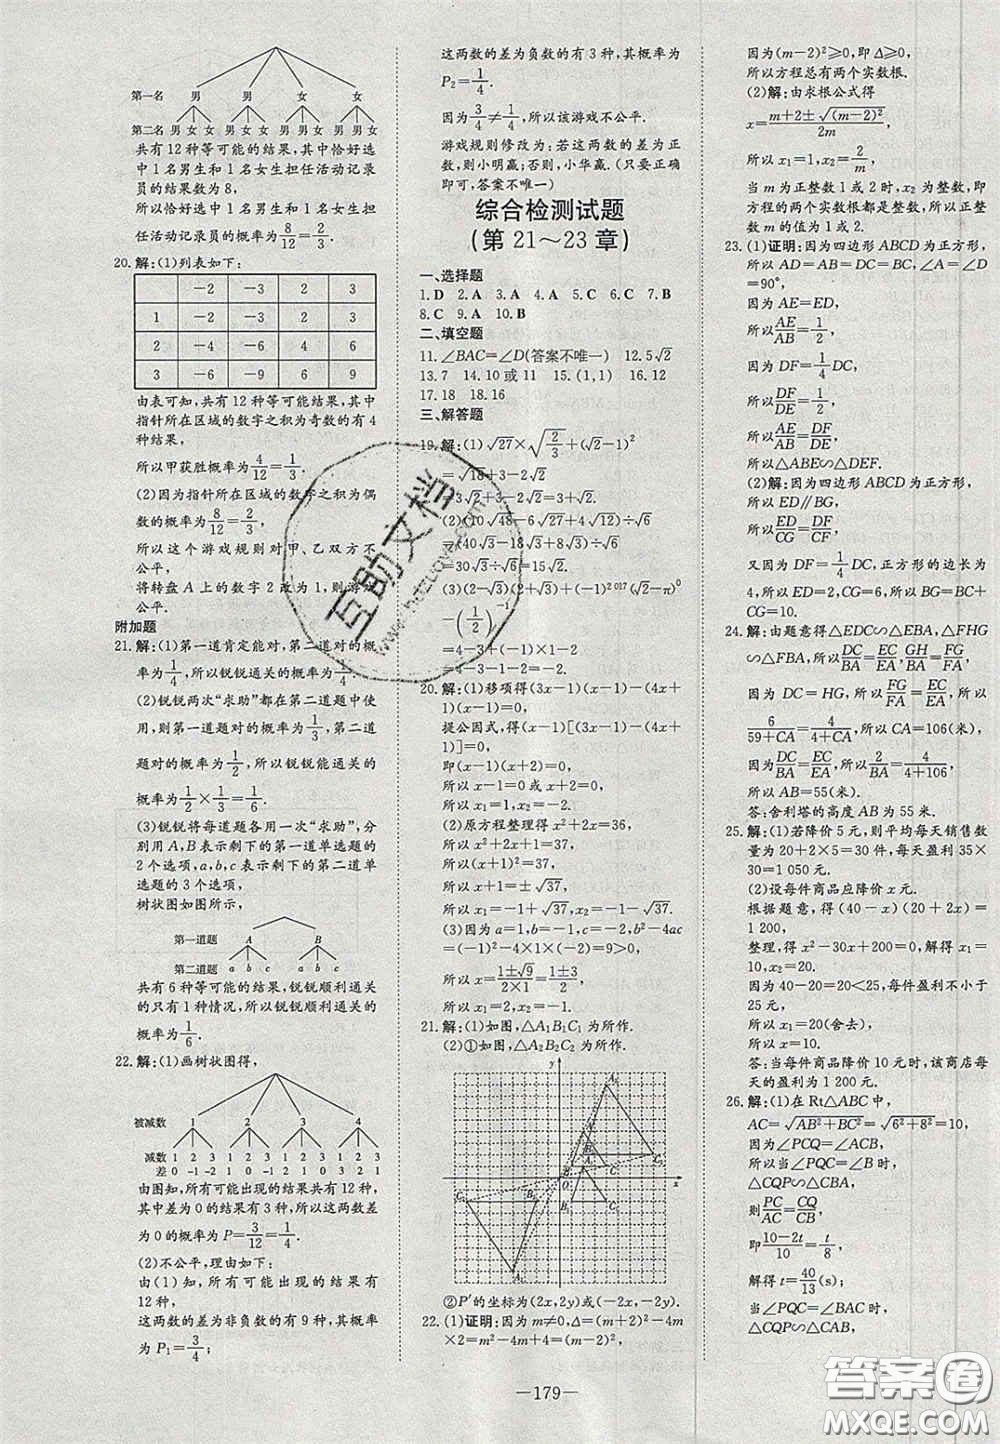 第一名 男 男 女 女
第二名 男 女 女 男 女 女 男 男 女 男 男 女
共有12种等可能的结果,其中恰好选
中1名男生和1名女生担任活动记录
员的结果数为8,
所以恰好选中1名男生和1名女生担
任活动记录员的概率为8/12=2/3.
20.解:(1)列表如下:
−2 −3 2 3
1 −2 −3 2 3
2 −4 −6 4 6
3 −6 −9 6 9
由表可知,共有12种等可能结果,其中
指针所在区域的数字之积为奇数的有4
种结果,
所以甲获胜概率为4/12=1/3.
(2)因为指针所在区域的数字之积为偶
数的概率为8/12=2/3,
所以这个游戏规则对甲、乙双方不
公平,
将转盘A上的数字2改为1,则游戏
公平.
附加题
21.解:(1)第一道肯定能对,第二道对的概
率为1/4,所以锐锐通关的概率为1/4.
(2)锐锐两次“求助”都在第二道题中使
用,则第一道题对的概率为1/2,第二道
题对的概率为
概率为1/2×1/3=1/6.
(3)锐锐将每道题各用一次“求助”,分
别用A,B表示剩下的第一道单选题的
2个选项,a,b,c表示剩下的第二道单
选题的3个选项,
树状图如图所示,
第一道题 A B
第二道题 a b c a b c
共有6种等可能的结果,锐锐顺利通关
的只有1种情况,所以锐锐顺利通关的
概率为1/6.
22.解:(1)画树状图得,
被减数 1 2 3 4
减数 1 2 3 1 2 3 1 2 3 1 2 3
差 0 −1 −2 1 0 −1 2 1 0 3 2 1
由图知,所有可能出现的结果共有12种,
其中差为0的结果有3种,所以这两数差
为0的概率为P=3/12=1/4.
(2)不公平,理由如下:
由(1)知,所有可能出现的结果共有
12种,
这两数的差为非负数的有9种,其概率
为P₁=3/4;
这两数的差为负数的有3种,其概率为
P₂=1/4.
因为3/4≠1/4,所以该游戏不公平.
游戏规则修改为:若这两数的差为正
数,则小明赢;否则,小华赢.(只要正确
即可,答案不唯一)
综合检测试题
(第21~23章)
一、选择题
1.D 2.A 3.A 4.A 5.C 6.C 7.B
8.C 9.A 10.B
二、填空题
11.∠BAC=∠D(答案不唯一) 12.5√2
13.7 14.10或11 15.(1,1) 16.12
17.18 18.16
三、解答题
19.解:(1)√27×√(2/3)+(√2−1)²
=√18+3−2√2
=3√2+3−2√2
=√2+3.
(2)(10√48−6√27+4√12)÷√6
=(40√3−18√3+8√3)÷√6
=30√3÷√6=15√2.
−(1/2)⁻¹
=4−3−(−1)×1−2
=4−3+1−2=0.
20.解:(1)移项得(3x−1)(x−1)−(4x+
1)(x−1)=0,
提公因式,得(x−1)[(3x−1)−(4x+
1)]=0,
即(x−1)(x+2)=0,
所以x−1=0或x+2=0,
所以x₁=1,x₂=−2.
(2)原方程整理得x²+2x=36,
所以x²+2x+1=37,
所以(x+1)²=37,
所以x+1=±√37,
所以x₁=−1+√37,x₂=−1−√37.
(3)因为a=1,b=−1,c=−2,b²−4ac
=(−1)²−4×1×(−2)=9>0,
所以x=(1±√9)/(2×1)=(1±3)/2,
所以x₁=2,x₂=−1.
21.解:(1)如图,△A₁B₁C₁为所作.
(2)①如图,△A₂B₂C₂为所作.
②P′的坐标为(2x,2y)或(−2x,−2y).
22.(1)证明:因为m≠0,Δ=(m+2)²−4m
×2=m²−4m+4=(m−2)²,
因为(m−2)²≥0,即Δ≥0,
所以方程总有两个实数根.
(2)解:由求根公式得
x=(m+2±√(m−2)²)/2m,
所以x₁=1,x₂=2/m,
当m为正整数1或2时,x₂为整数,即
方程的两个实数根都是整数,所以正整
数m的值为1或2.
23.(1)证明:因为四边形ABCD为正方形,
所以AD=AB=DC=BC,∠A=∠D
=90°,
因为AE=ED,
所以AE/AB=1/2,
因为DF=1/4DC,
所以DF/DE=1/2,
所以AE/AB=DF/DE,
所以△ABE∽△DEF.
(2)解:因为四边形ABCD为正方形,
所以ED∥BG,
所以ED/CG=DF/CF,
又因为DF=1/4DC,正方形的边长为
4,所以ED=2,CG=6,所以BG=BC+
CG=10.
24.解:由题意得△EDC∽△EBA,△FHG
∽△FBA,所以DC/BA=EC/EA,GH/BA=FG/FA,
因为DC=HG,所以FG/FA=EC/EA,所以
6/(59+CA)=4/(4+CA),所以CA=106(米).
因为DC/BA=EC/EA,所以2/BA=4/(4+106),
所以AB=55(米).
答:舍利塔的高度AB为55米.
25.解:(1)若降价5元,则平均每天销售数
量为20+2×5=30件,每天盈利35×
30=1 050元.
(2)设每件商品应降价x元.
根据题意,得(40−x)(20+2x)=
1 200,
整理,得x²−30x+200=0,解得x₁=
10,x₂=20.
因为40−20=20<25,每件盈利不小于
25元,
所以x₁=20(舍去),
所以x=10.
答:当每件商品降价10元时,该商店每
天的盈利为1 200元.
26.解:(1)在Rt△ABC中,
AC=√(AB²+BC²)=√(6²+8²)=10,
因为∠PCQ=∠ACB,
所以当∠PQC=∠B时,
△CQP∽△CBA,
则PC/AC=CQ/CB,
即(10−2t)/10=t/8,
解得t=40/13(s);
当∠PQC=∠BAC时,
△CPQ∽△CBA,
—179—
互助文档
答案圈
MXQE.COM